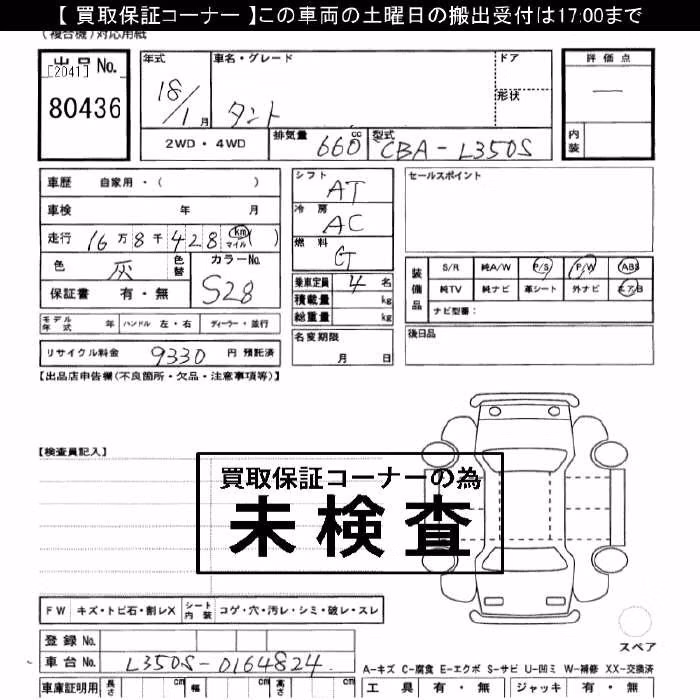 【 買取保証コーナー 】この車両の土曜日の搬出受付は17:00まで
(複合機)対応用紙
出品 No.
[2041]
80436
年式
18/1月
車名・グレード
タント
ドア
形状
2WD・4WD
排気量 660 cc
型式 CBA-L350S
評価点
—
内装
車歴 自家用・( )
車検 年 月
走行 16万8千428 km マイル ( )
色 灰 色替
カラーNo.
S28
保証書 有・無
シフト AT
冷房 AC
燃料 G
乗車定員 4 名
積載量 kg
総重量 kg
セールスポイント
装備品
S/R 純A/W P/S P/W ABS
純TV 純ナビ 革シート 外ナビ エアB
ナビ型番:
モデル年式 年 ハンドル 左・右 ディーラー・並行
名変期限
月 日
後日品
リサイクル料金 9330 円 預託済
【出品店申告欄(不良箇所・欠品・注意事項等)】
【検査員記入】
買取保証コーナーの為
未検査
FW キズ・トビ石・割レX シート内装 コゲ・穴・汚レ・シミ・破レ・スレ
登録 No.
車台 No. L350S-0164824
スペア
A-キズ C-腐食 E-エクボ S-サビ U-凹ミ W-補修 XX-交換済
車庫証明用 長さ cm 幅 cm 高さ cm
工具 有・無 ジャッキ 有・無